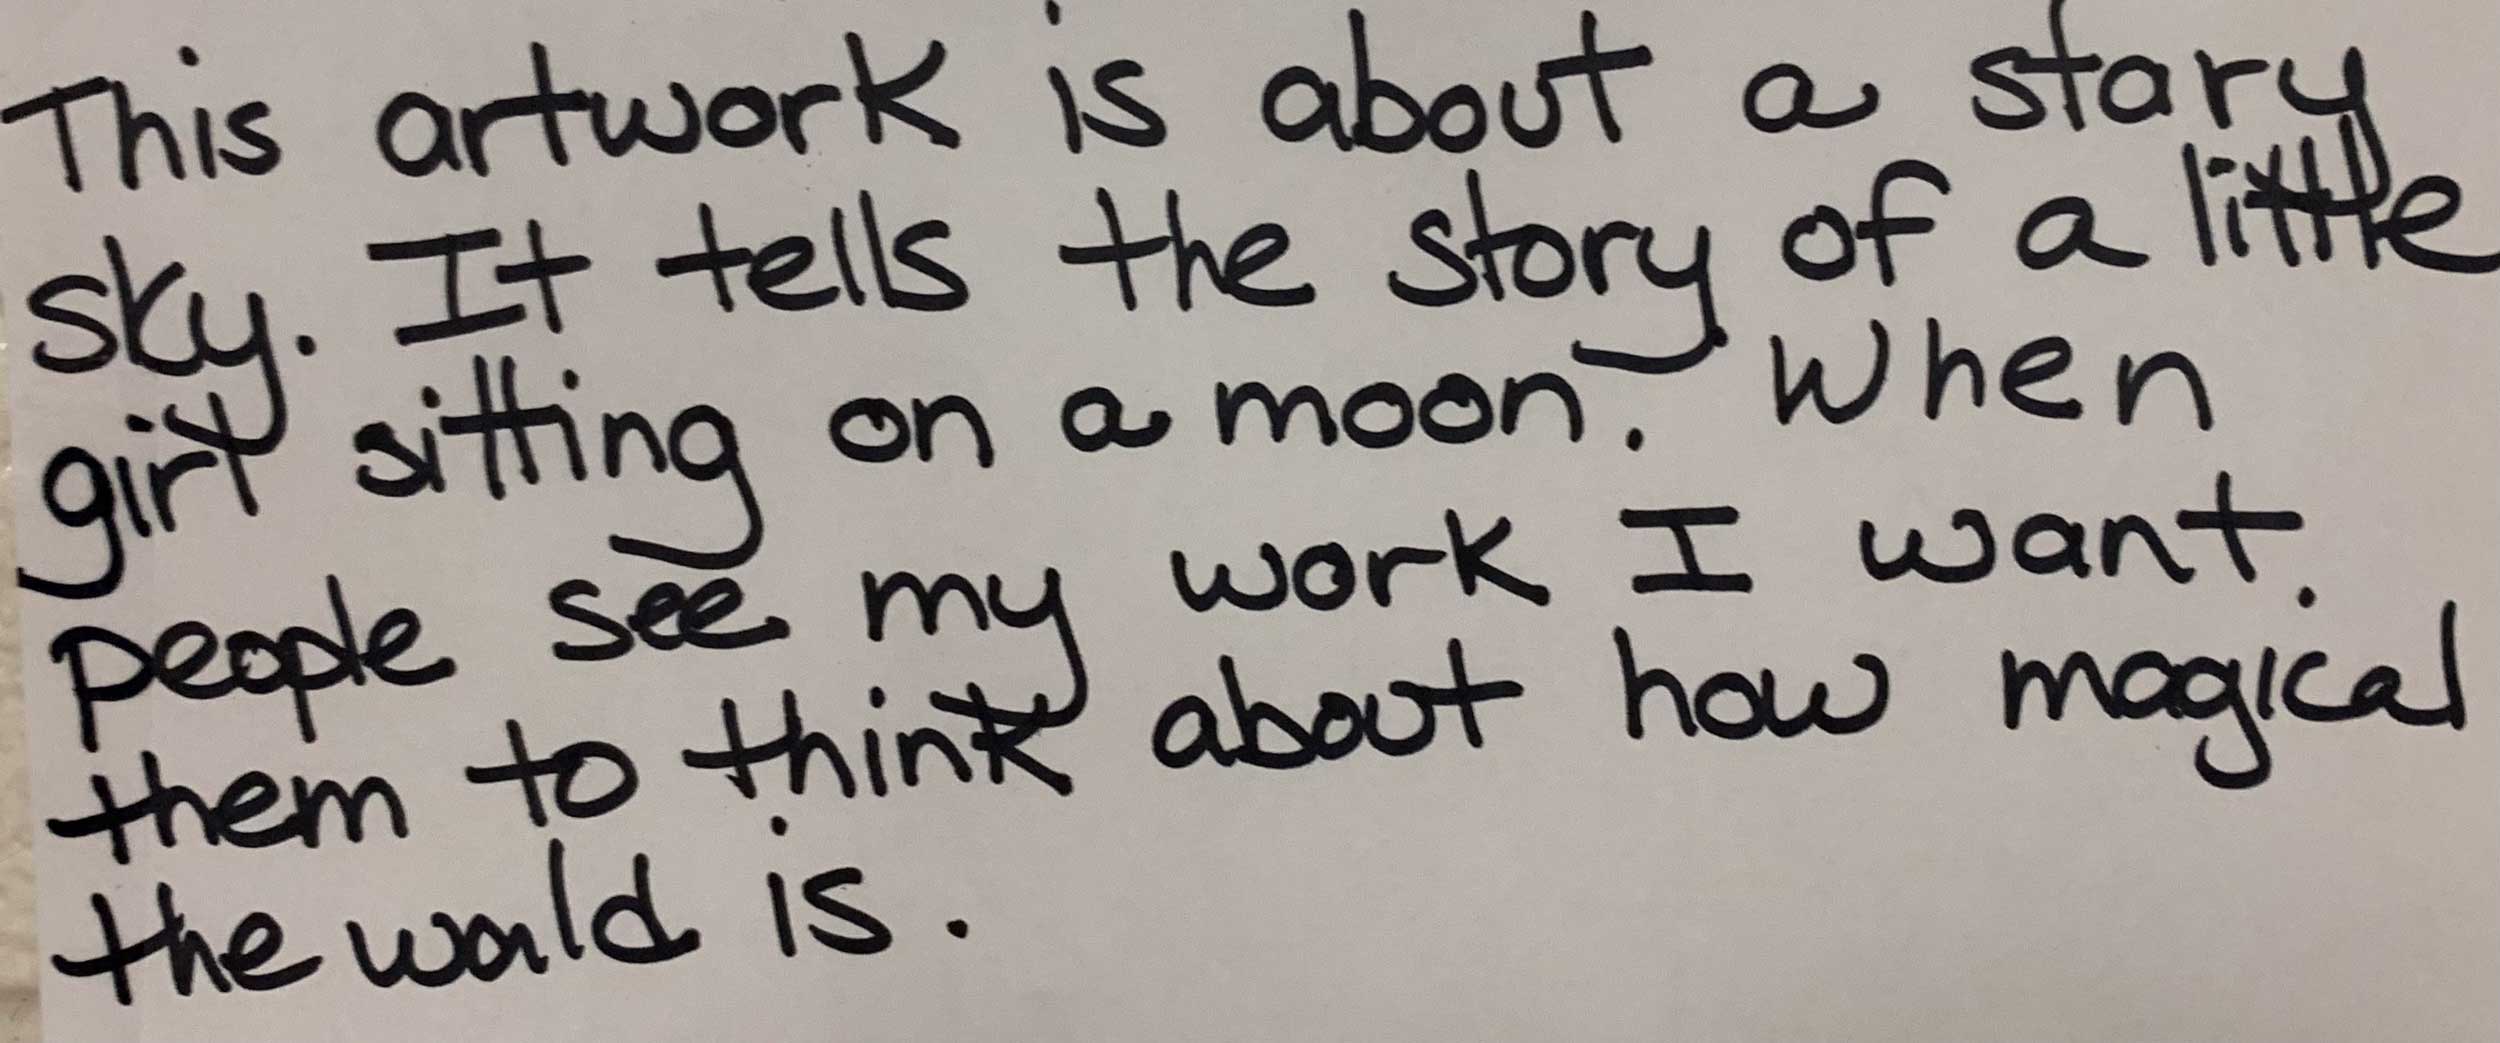 This artwork is about a stary
sky. It tells the story of a little
girl sitting on a moon. When
people see my work I want.
them to think about how magical
the world is.